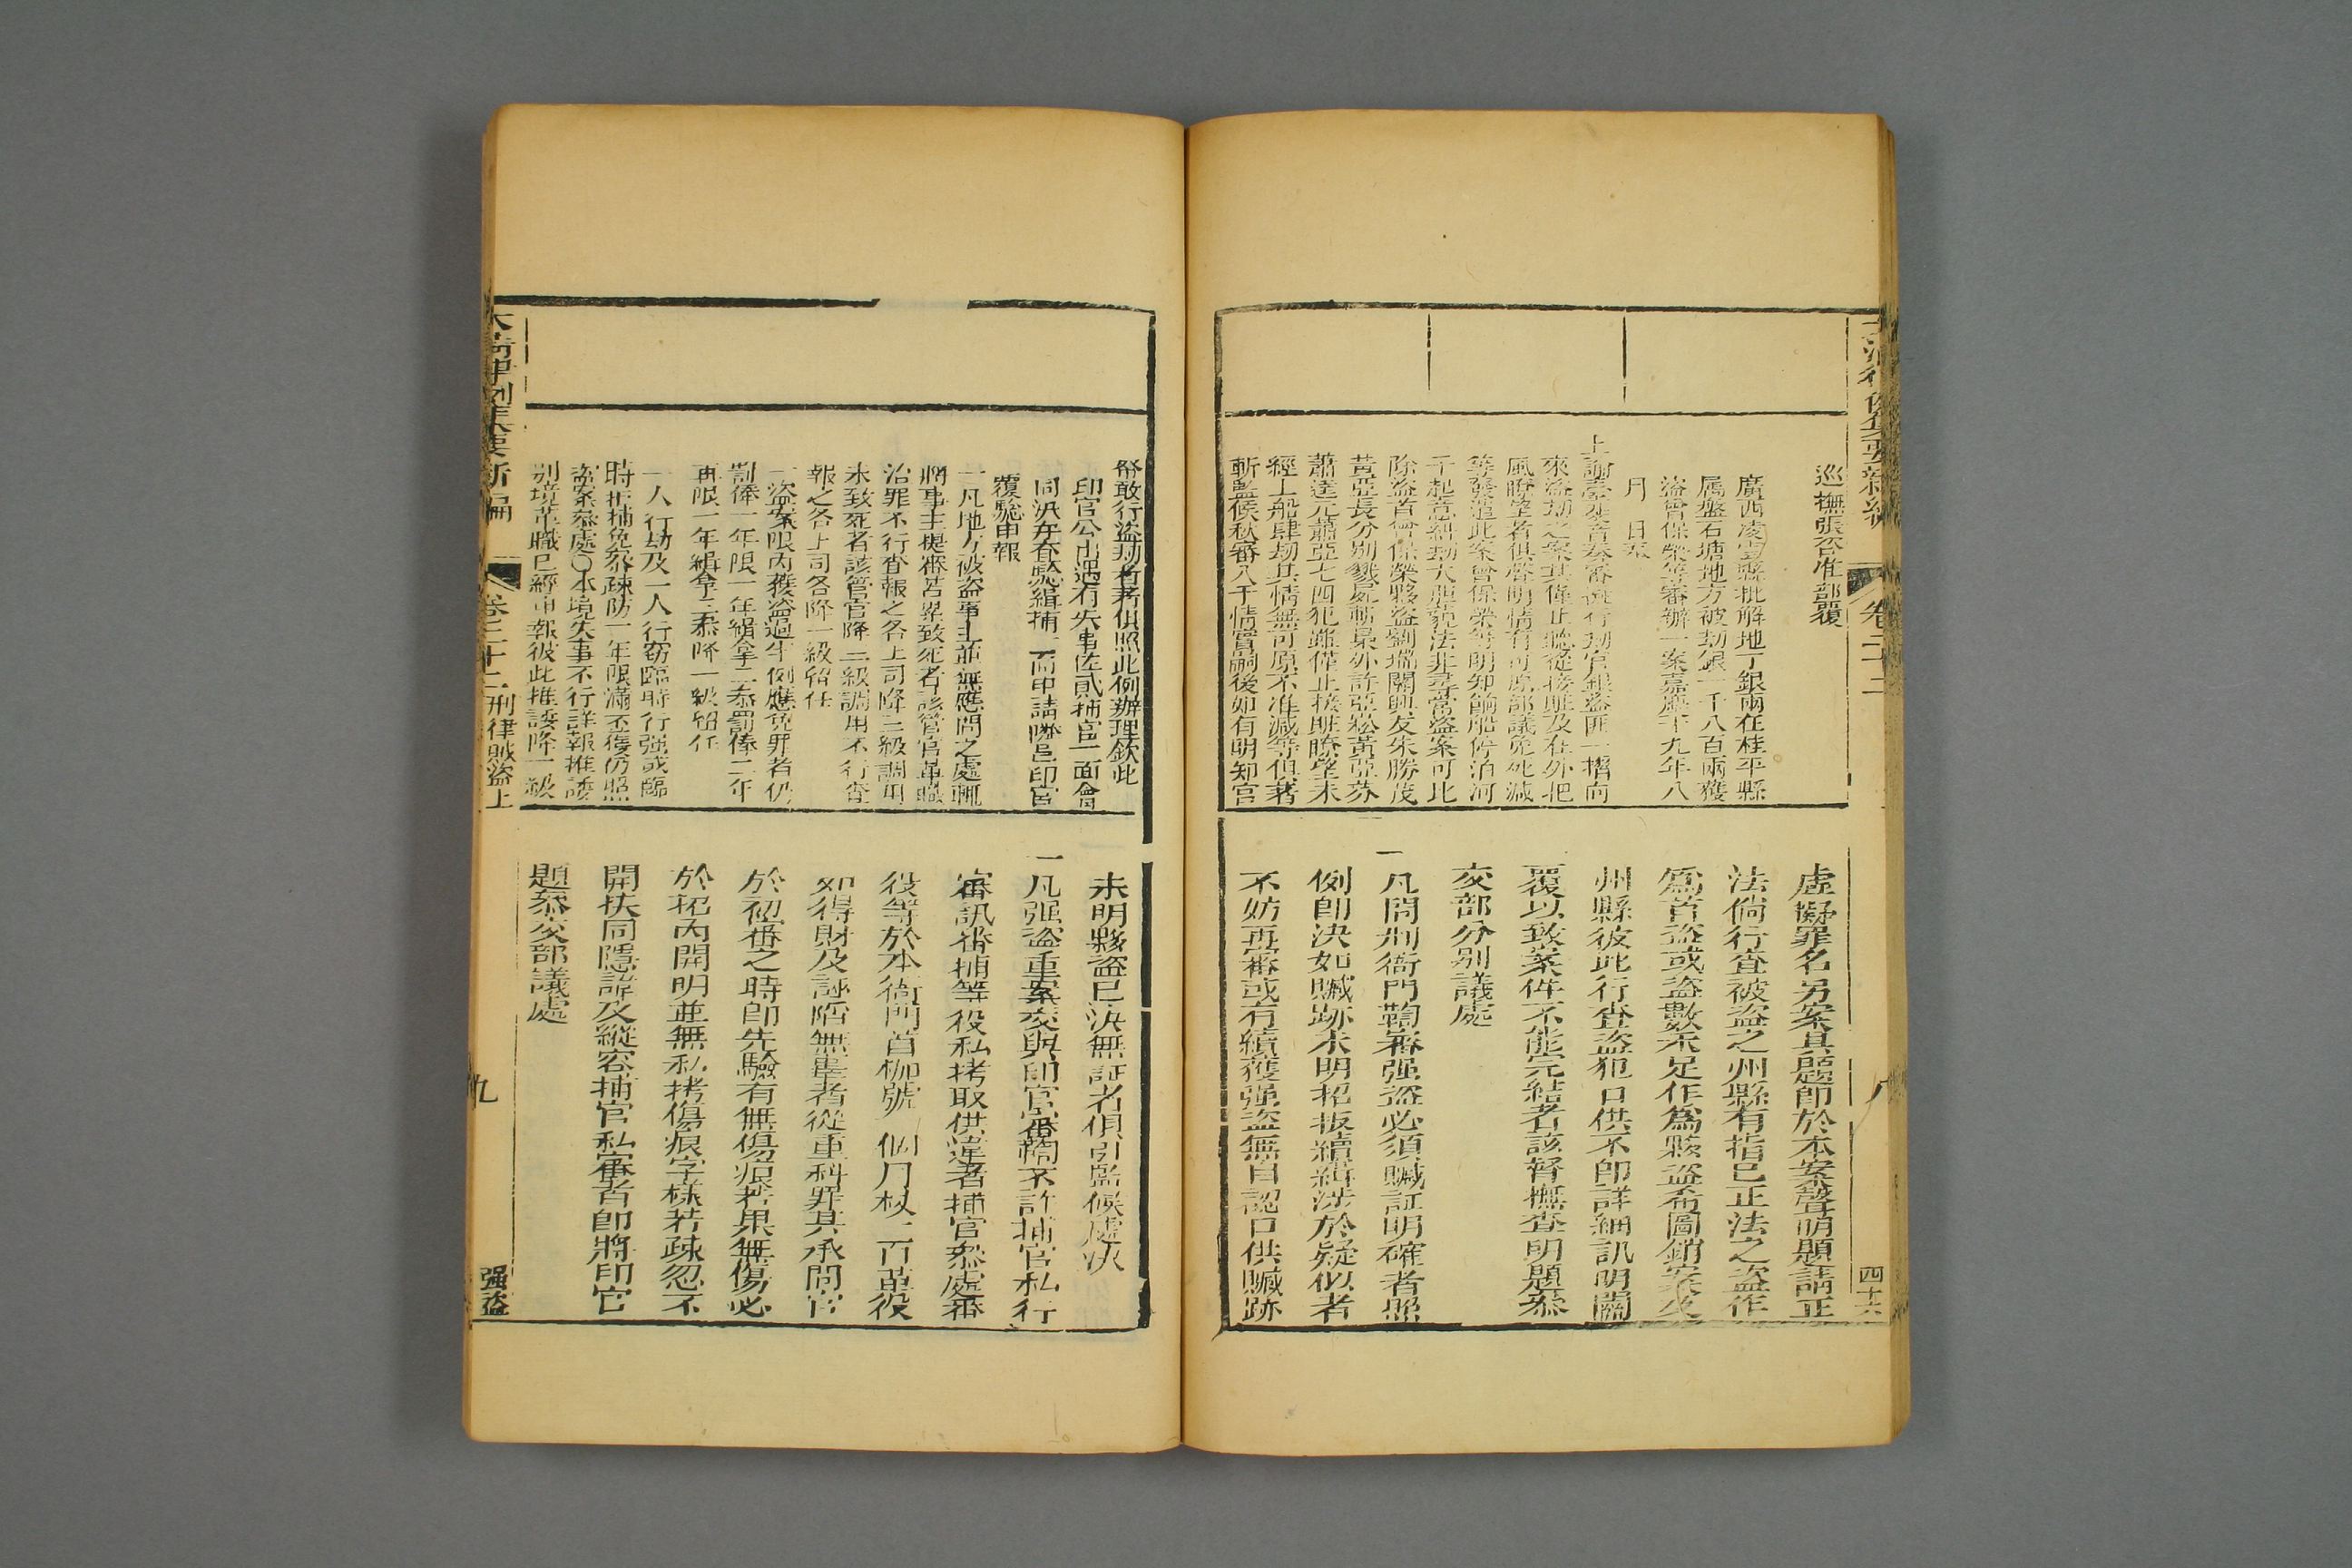 大清律例集要新編
卷二十二
八
四十六
巡撫張咨准部覆
廣西凌雲縣批解地丁銀兩在桂平縣
属盤石塘地方被劫銀一千八百兩獲
盗曾保榮等審辦一案嘉慶十九年八
月 日奉
上諭臺斐音奏審擬行劫官銀盗匪一摺向
來盗劫之案其僅止聽從接賍及在外把
風瞭望者俱聲明情有可原部議免死減
等發遣此案曾保榮等明知餉船停泊河
干起意糾劫大胆藐法非尋常盗案可比
除盗首曾保榮夥盗劉瑞關興友朱勝茂
黃亞長分别戮屍斬梟外許亞崧黃亞荪
蕭達元蕭亞七四犯雖僅止接賍瞭望未
經上船肆劫其情無可原不准減等俱著
斬監候秋審入于情實嗣後如有明知官
虛擬罪名另案具題即於本案聲明題請正
法倘行查被盗之州縣有指已正法之盗作
爲首盗或盗數不足作爲夥盗希圖銷案及
州縣彼此行查盗犯口供不即詳細訊明關
覆以致案件不能完結者該督撫查明題叅
交部分别議處
一凡問刑衙門鞫審强盗必須贓証明確者照
例即決如贓跡未明招扳續緝渉於疑似者
不妨再審或有續獲强盗無自認口供贓跡
帑敢行盗劫者著俱照此例辦理欽此
印官公出遇有失事佐貳捕官一面會
同汛弁查騐緝捕一面申請隣邑印官
覆騐申報
一凡地方被盗事主並無應問之處輒
將事主提審苦累致死者該管官革職
治罪不行查報之各上司降三級調用
未致死者該管官降二級調用不行查
報之各上司各降一級留任
一盗案限内獲盗過半例應免罪者仍
罰俸一年限一年緝拿二叅罰俸二年
再限一年緝拿三叅降一級留任
一人行劫及一人行窃臨時行强或臨
時拒捕免叅疎防一年限滿不獲仍照
盗案叅處〇本境失事不行詳報推諉
别境革職已經申報彼此推諉降一級
未明夥盗已決無証者俱引監候處決
一凡强盗重案交與印官審鞫不許捕官私行
審訊番捕等役私拷取供違者捕官叅處番
役等於本衙門首枷號一個月杖一百革役
如得財及誣陷無辜者從重科罪其承問官
於初審之時即先驗有無傷痕若果無傷必
於招内開明並無私拷傷痕字樣若疎忽不
開扶同隱諱及縱容捕官私審者即將印官
題叅交部議處
大清律例集要新編
卷二十二刑律賊盗上
九
强盗